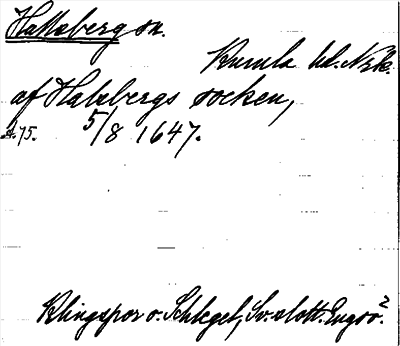 Hallsberg sn.
Kumla hd. Nrk.
af Halsbergs socken,
s. 75. 5/8 1647.
Klingspor o. Schlegel, Sv. slott. Engsö 2.